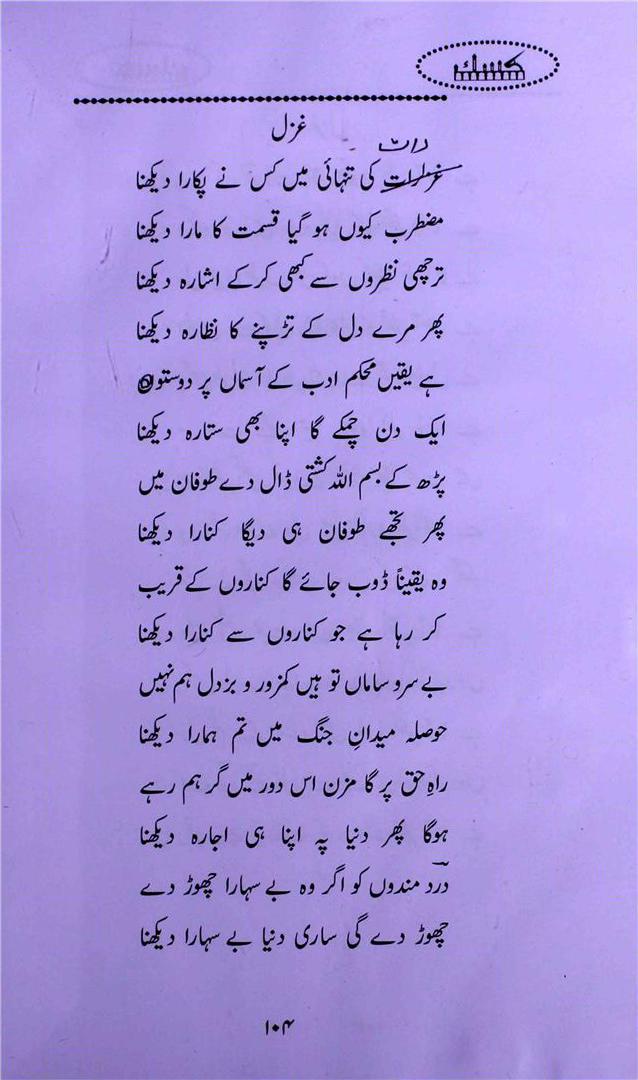 کسک
غزل
رات
غزلیات کی تنہائی میں کس نے پکارا دیکھنا
مضطرب کیوں ہو گیا قسمت کا مارا دیکھنا
ترچھی نظروں سے کبھی کرکے اشارہ دیکھنا
پھر مرے دل کے تڑپنے کا نظارہ دیکھنا
ہے یقیں محکم ادب کے آسماں پر دوستوں
ایک دن چمکے گا اپنا بھی ستارہ دیکھنا
پڑھ کے بسم اللہ کشتی ڈال دے طوفان میں
پھر تجھے طوفان ہی دیگا کنارا دیکھنا
وہ یقیناً ڈوب جائے گا کناروں کے قریب
کر رہا ہے جو کناروں سے کنارا دیکھنا
بے سرو ساماں تو ہیں کمزور و بزدل ہم نہیں
حوصلہ میدانِ جنگ میں تم ہمارا دیکھنا
راہِ حق پر گا مزن اس دور میں گر ہم رہے
ہوگا پھر دنیا پہ اپنا ہی اجارہ دیکھنا
درد مندوں کو اگر وہ بے سہارا چھوڑ دے
چھوڑ دے گی ساری دنیا بے سہارا دیکھنا
۱۰۴